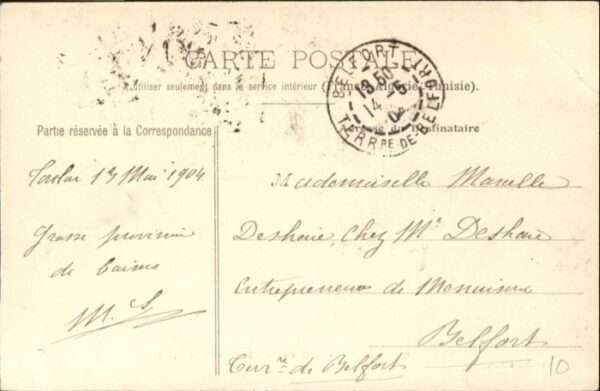 CARTE POSTALE
A utiliser seulement dans le service intérieur (France, Algérie, Tunisie).
Partie réservée à la Correspondance
Adresse du Destinataire
BELFORT
13 50
14 - 5
TERRRE DE-BELFORT
Toulon 13 Mai 1904
Grosse provision
de baisers
M. S
Mademoiselle Marcelle
Deshaie, Chez Mr Deshaie
Entrepreneur de Menuiserie
Belfort
Terre de Belfort
10